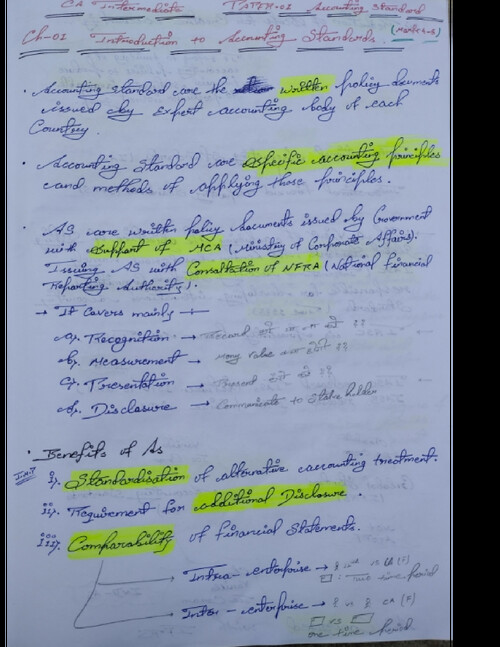 CA Intermediate PAPER-01 Accounting Standard
Ch-01 Introduction to Accounting Standards.
• Accounting Standard are the written policy documents
issued by Expert accounting body of each
Country.
• Accounting Standard are specific accounting principles
and methods of applying those principles.
• AS are written policy documents issued by Government
with Support of MCA (Ministry of Corporate Affairs).
Issuing AS with Consultation of NFRA (National Financial
Reporting Authority).
→ It Covers mainly
a). Recognition → Record
b). Measurement → value
c). Presentation → Present
d). Disclosure → Communicate to Stakeholder
• Benefits of As
i). Standardisation of alternative accounting treatment.
ii). Requirement for additional Disclosure.
iii) Comparability of financial Statements.
→ Intra-enterprise →
→ Inter-enterprise →
one time period